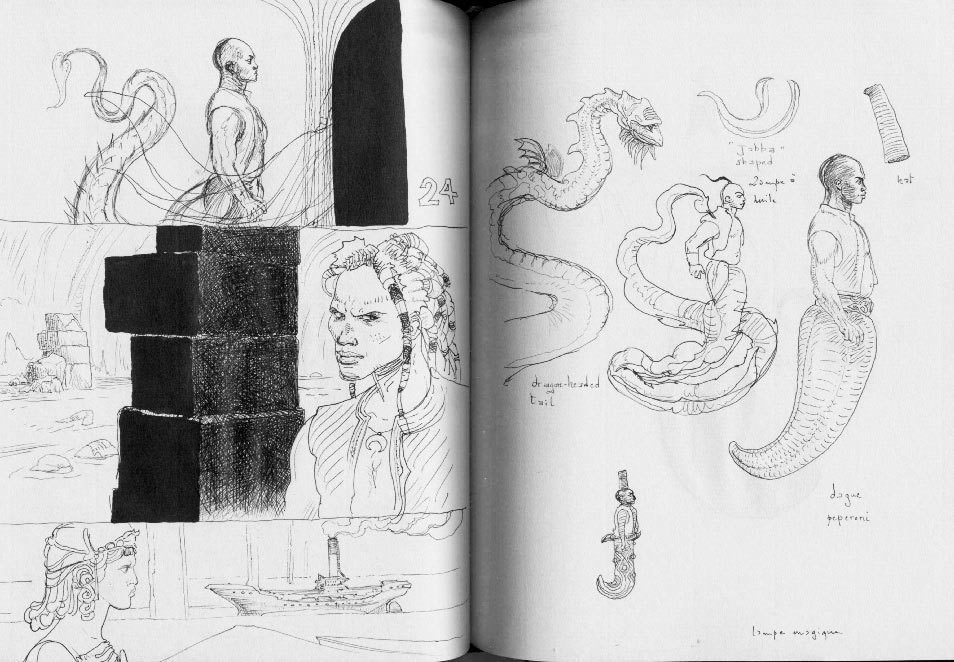 24
"Jabba"
shaped
Lampe à
huile
hat
dragon-headed
tail
dague
peperoni
lampe magique